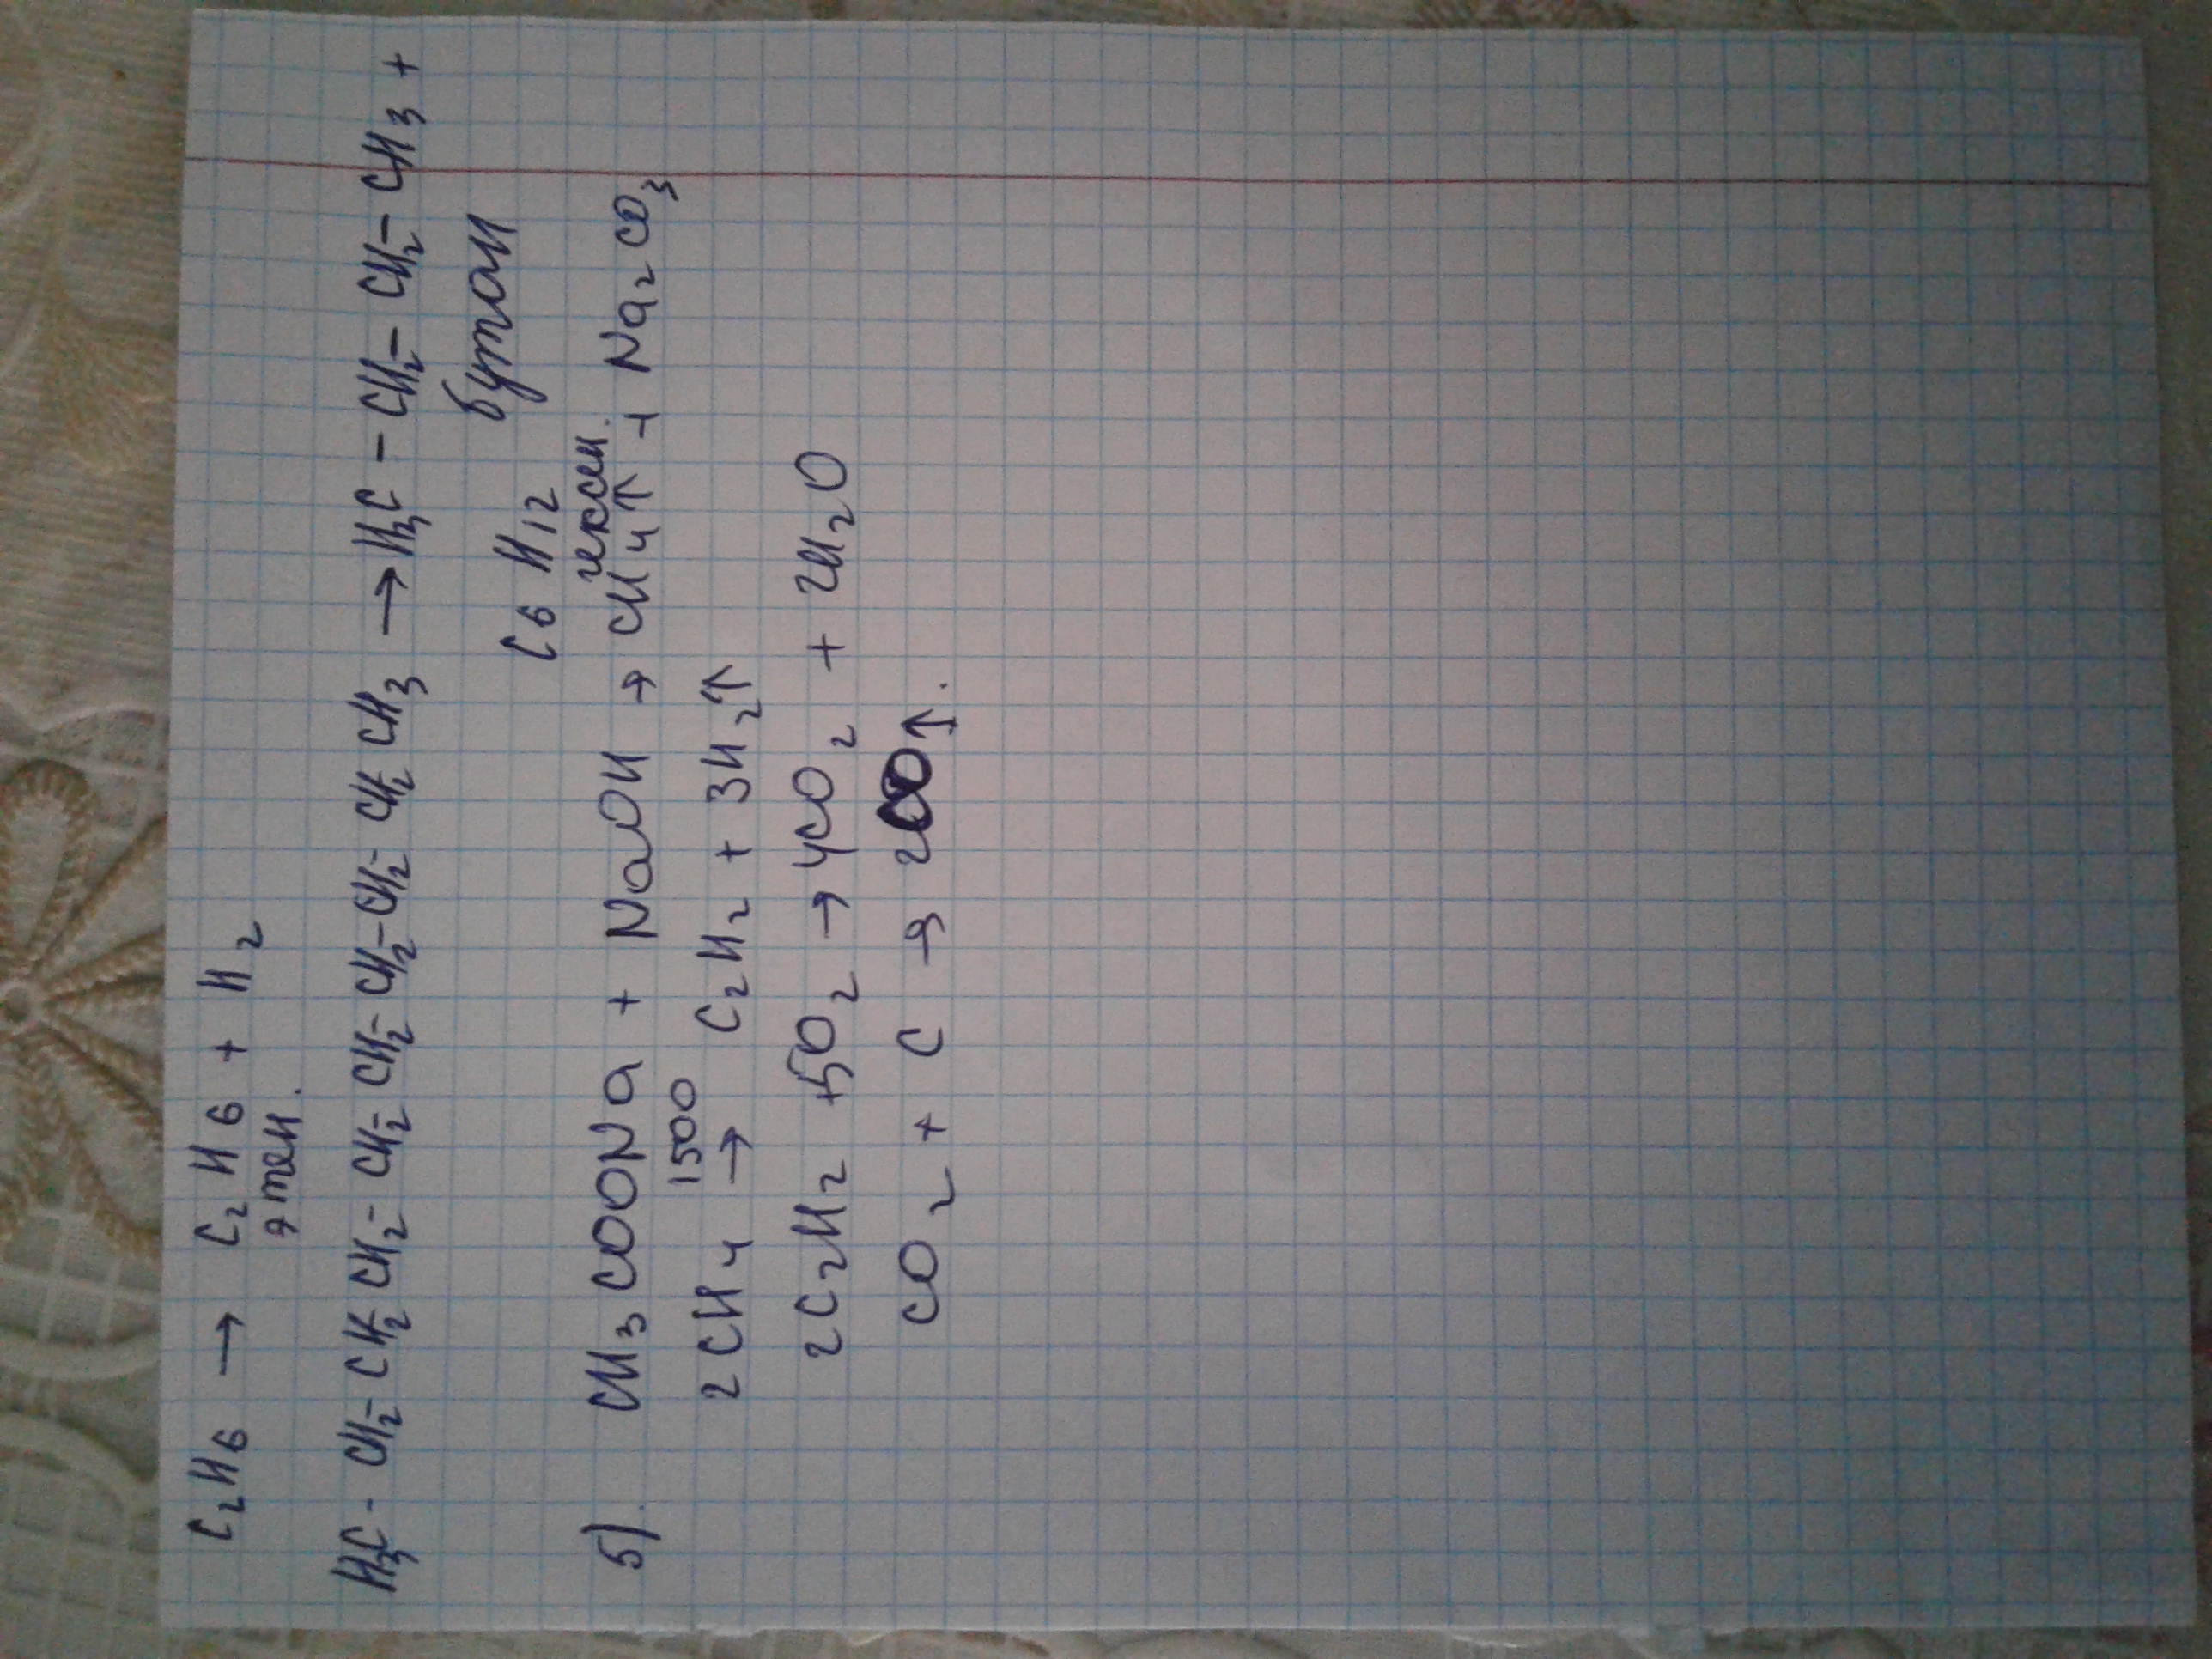 C₂H₆ → C₂H₆ + H₂
этен.
H₃C - CH₂ - CH₂ CH₂ - CH₂ - CH₂ - CH₂ - CH₂ - CH₂ CH₃ → H₃C - CH₂ - CH₂ - CH₃ +
бутан
C₆H₁₂
гексен.
5). CH₃COONa + NaOH → CH₄↑ + Na₂CO₃
1500
2CH₄ → C₂H₂ + 3H₂↑
2C₂H₂ + 5O₂ → 4CO₂ + 2H₂O
CO₂ + C → 2CO↑.